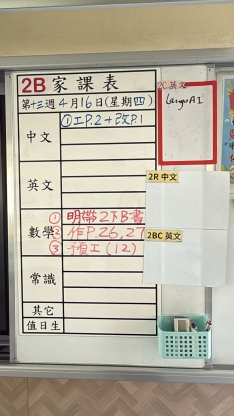 2B 家課表
第十三週 4月16日(星期四)
中文
①工P.2+改P.1
英文
數學
①明帶2下B書
②作P.26,27
③預工(12)
常識
其它
值日生
2C 英文
LangoAI
2R 中文
2BC 英文